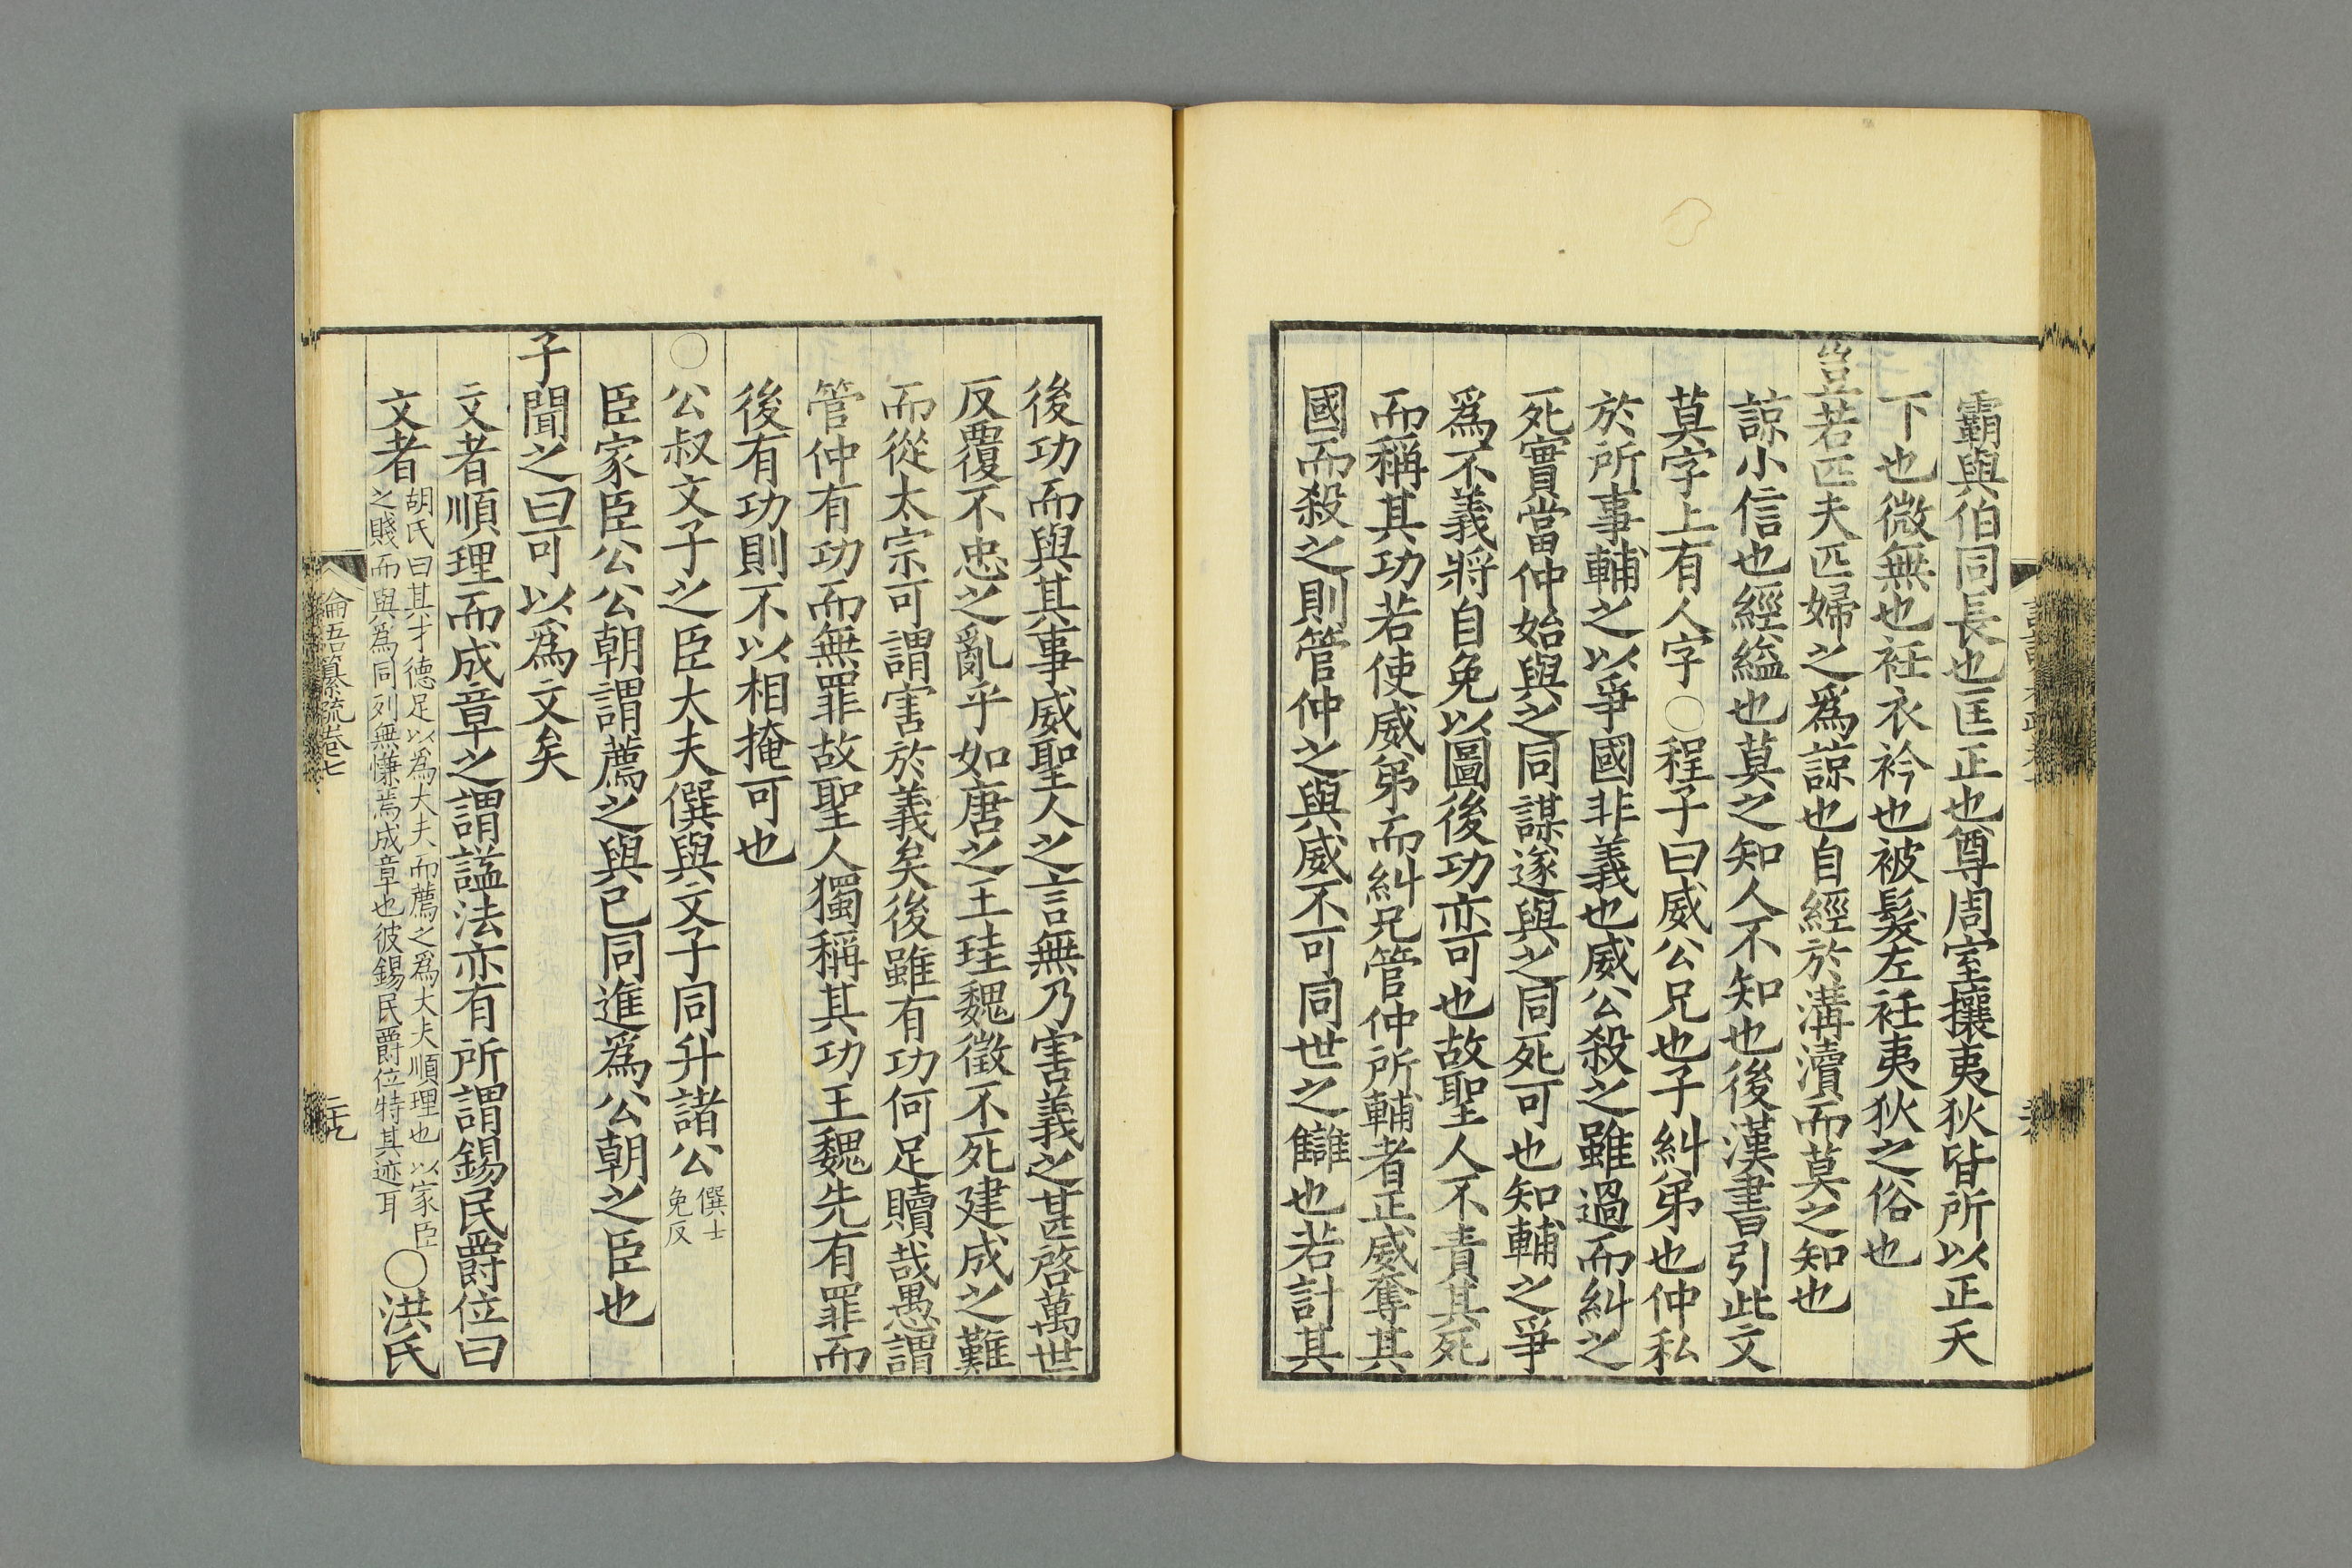 霸與伯同長也匡正也尊周室攘夷狄皆所以正天
下也微無也衽衣衿也被髮左衽夷狄之俗也
豈若匹夫匹婦之爲諒也自經於溝瀆而莫之知也
諒小信也經縊也莫之知人不知也後漢書引此文
莫字上有人字○程子曰威公兄也子糾弟也仲私
於所事輔之以爭國非義也威公殺之雖過而糾之
死實當仲始與之同謀遂與之同死可也知輔之爭
爲不義將自免以圖後功亦可也故聖人不責其死
而稱其功若使威弟而糾兄管仲所輔者正威奪其
國而殺之則管仲之與威不可同世之讎也若計其
後功而與其事威聖人之言無乃害義之甚啓萬世
反覆不忠之亂乎如唐之王珪魏徵不死建成之難
而從太宗可謂害於義矣後雖有功何足贖哉愚謂
管仲有功而無罪故聖人獨稱其功王魏先有罪而
後有功則不以相掩可也
○公叔文子之臣大夫僎與文子同升諸公僎士
免反
臣家臣公公朝謂薦之與己同進爲公朝之臣也
子聞之曰可以爲文矣
文者順理而成章之謂諡法亦有所謂錫民爵位曰
文者胡氏曰其才德足以爲大夫而薦之爲大夫順理也以家臣
之賤而與爲同列無慊焉成章也彼錫民爵位特其迹耳○洪氏
論語纂疏卷七
二十九